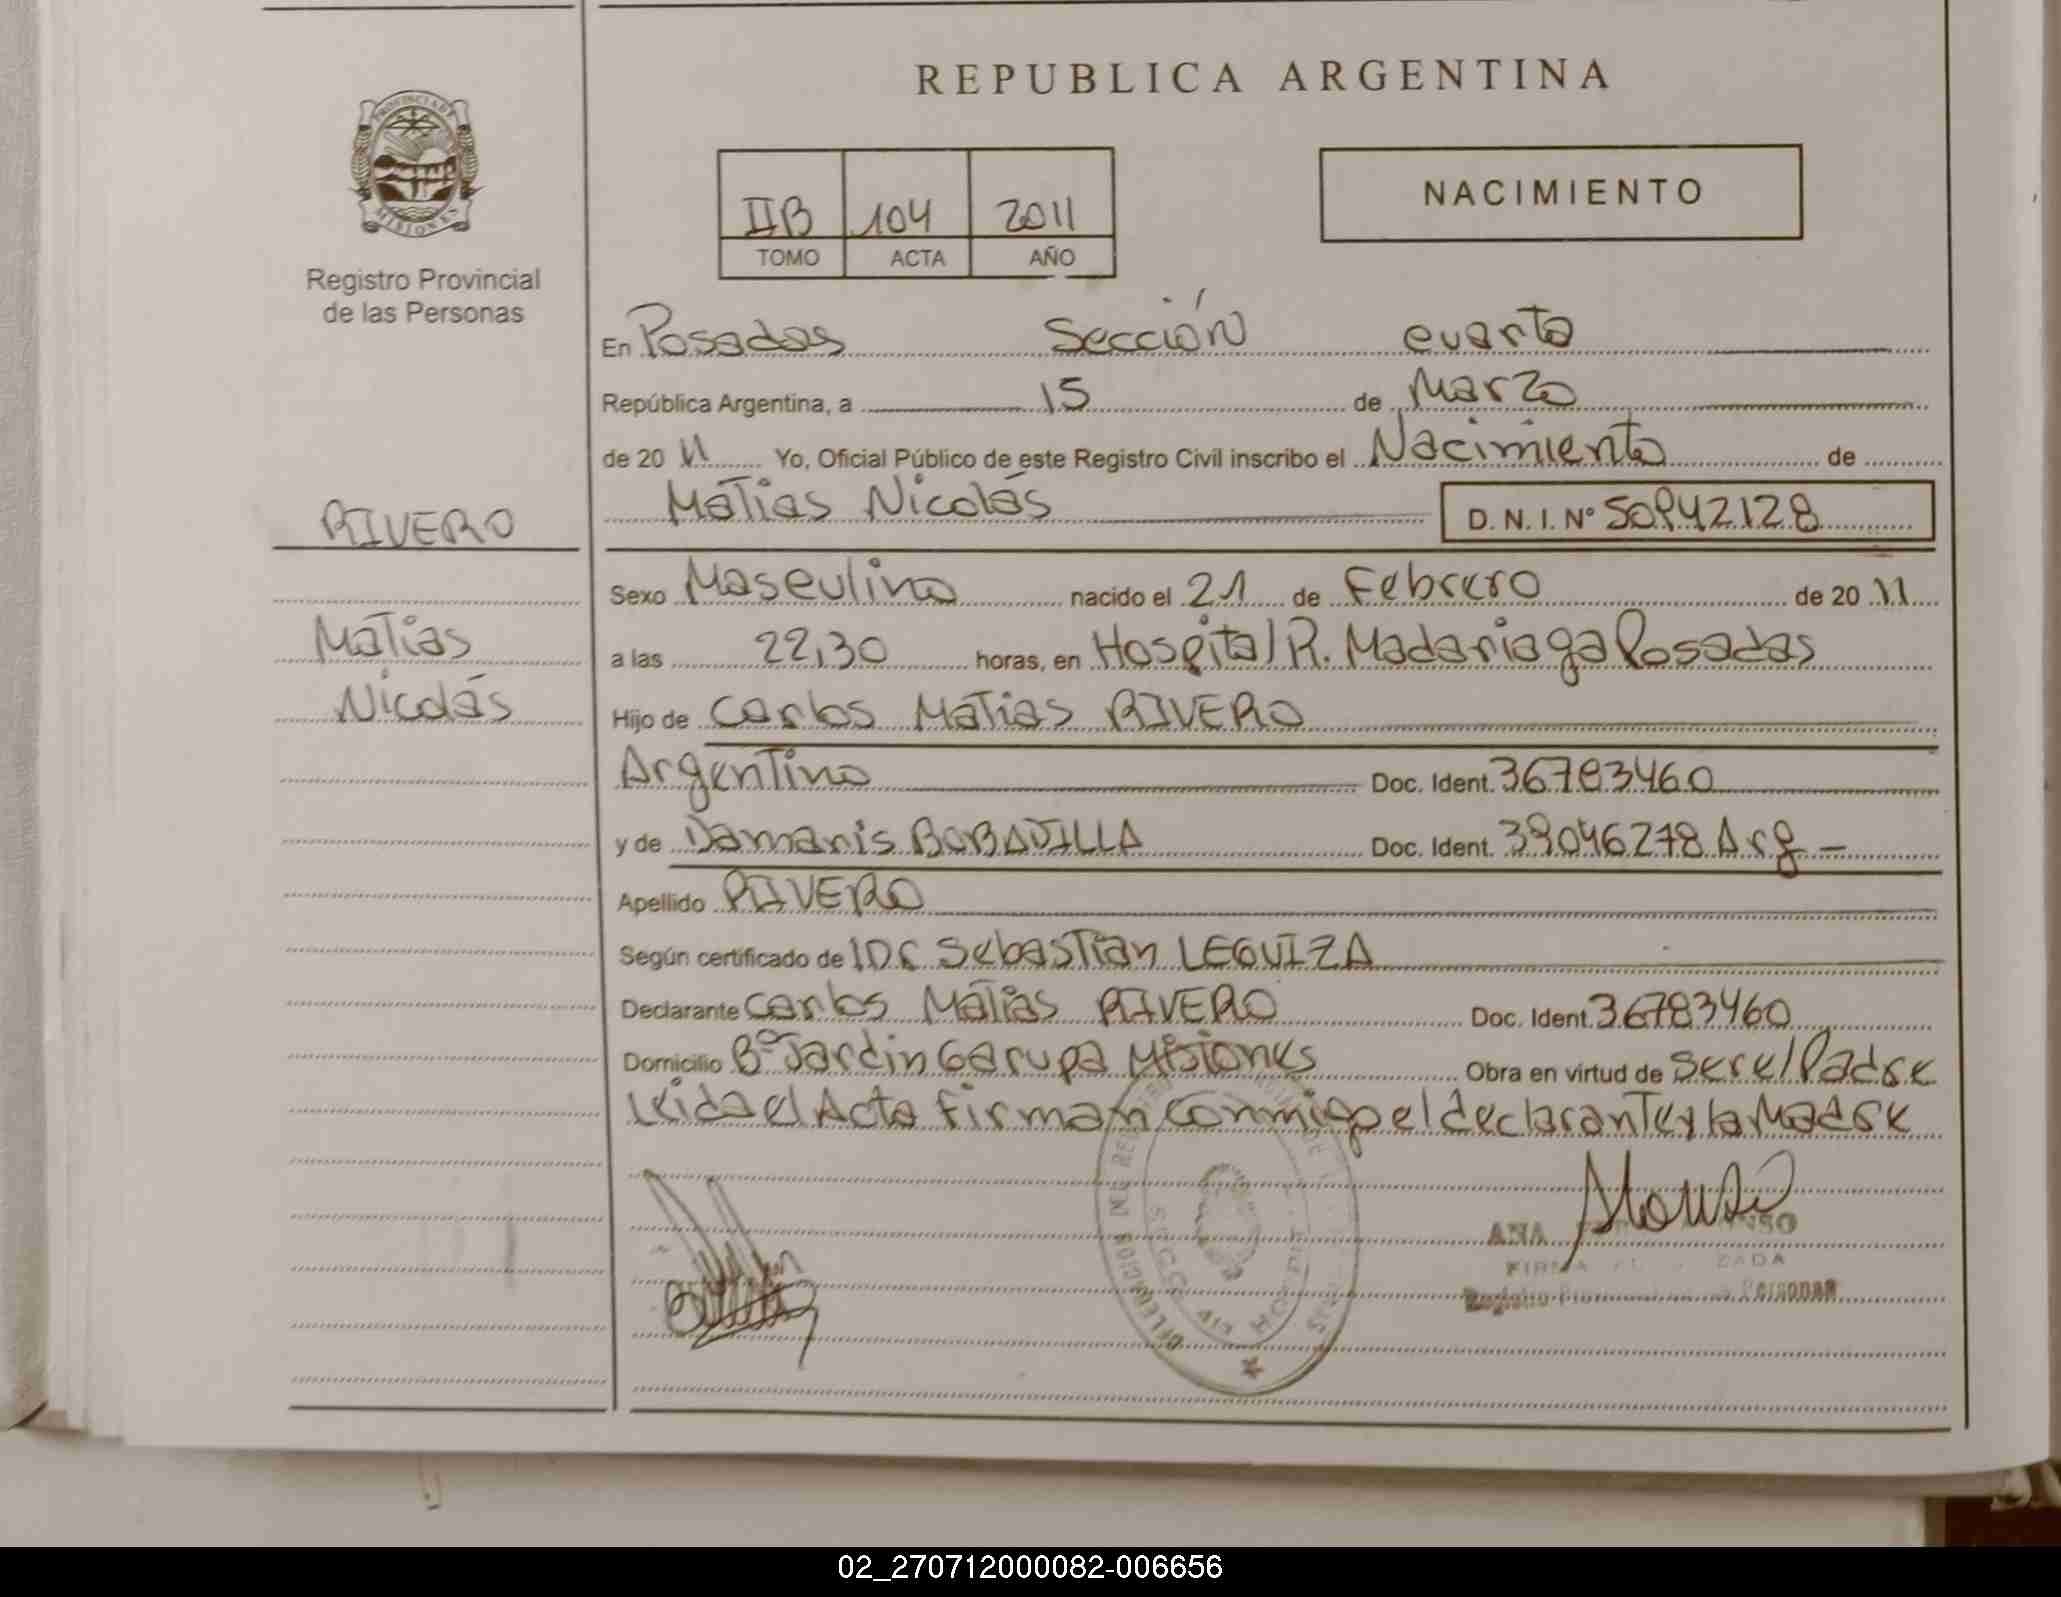 REPUBLICA ARGENTINA
PROVINCIA DE MISIONES
Registro Provincial
de las Personas
IIB 104 2011
TOMO ACTA AÑO
NACIMIENTO
En Posadas Sección cuarta
República Argentina, a 15 de Marzo
de 20 11 Yo, Oficial Público de este Registro Civil inscribo el Nacimiento de
RIVERO
Matias Nicolás D. N. I. Nº
Sexo Masculino nacido el 21 de Febrero de 20 11
Matias
a las 22,30 horas, en Hospital R. Madariaga Posadas
Nicolás
Hijo de Carlos Matias RIVERO
Argentino Doc. Ident. 36783460
y de Damanis BOBADILLA Doc. Ident. 39046278 Arg
Apellido RIVERO
Según certificado de Sebastian LEGUIZA
Declarante Carlos Matias RIVERO Doc. Ident. 36783460
Domicilio Bº Jardin Garupa Misiones Obra en virtud de ser el Padre
leida el Acta firman conmigo el declarante y la Madre
ANA
Personas
02_270712000082-006656